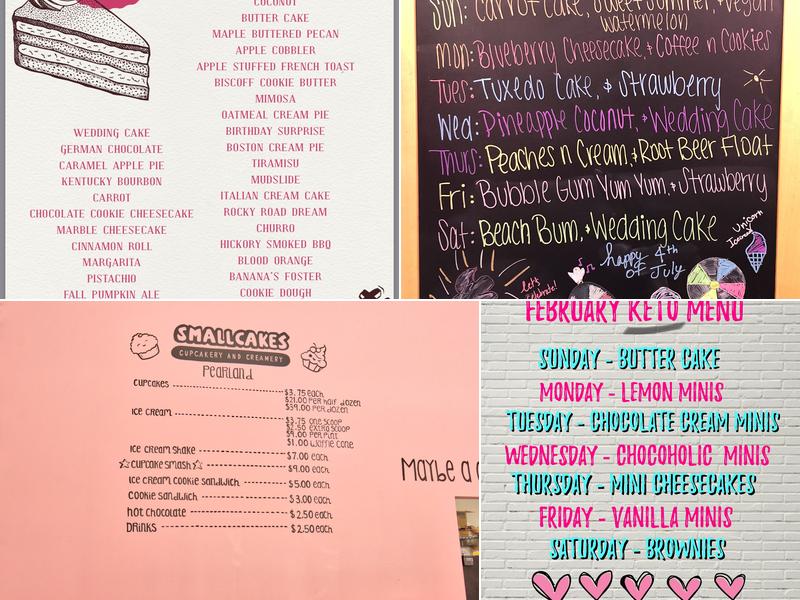 COCONUT
BUTTER CAKE
MAPLE BUTTERED PECAN
APPLE COBBLER
APPLE STUFFED FRENCH TOAST
BISCOFF COOKIE BUTTER
MIMOSA
OATMEAL CREAM PIE
BIRTHDAY SURPRISE
BOSTON CREAM PIE
TIRAMISU
MUDSLIDE
ITALIAN CREAM CAKE
ROCKY ROAD DREAM
CHURRO
HICKORY SMOKED BBQ
BLOOD ORANGE
BANANA'S FOSTER
COOKIE DOUGH
WEDDING CAKE
GERMAN CHOCOLATE
CARAMEL APPLE PIE
KENTUCKY BOURBON
CARROT
CHOCOLATE COOKIE CHEESECAKE
MARBLE CHEESECAKE
CINNAMON ROLL
MARGARITA
PISTACHIO
FALL PUMPKIN ALE
Sun: Carrot Cake, Sweet Summer, + Vegan
watermelon
Mon: Blueberry Cheesecake, + Coffee n Cookies
Tues: Tuxedo Cake, & Strawberry
Wed: Pineapple Coconut, + Wedding Cake
Thurs: Peaches n Cream, + Root Beer Float
Fri: Bubble Gum Yum Yum, + Strawberry
Sat: Beach Bum, + Wedding Cake
Unicorn
Icecream
happy 4th
OF July
Let's
Celebrate!
SMALLCAKES
CUPCAKERY AND CREAMERY
Pearland
Cupcakes $3.75 each
$21.00 per half dozen
$39.00 per dozen
Ice cream $3.75 one scoop
$2.50 extra scoop
$9.00 per pint
$1.00 waffle cone
Ice cream shake $7.00 each
Cupcake smash $9.00 each
Ice cream cookie sandwich $5.00 each
Cookie sandwich $3.00 each
Hot chocolate $2.50 each
Drinks $2.50 each
Maybe a
FEBRUARY KETO MENU
SUNDAY - BUTTER CAKE
MONDAY - LEMON MINIS
TUESDAY - CHOCOLATE CREAM MINIS
WEDNESDAY - CHOCOHOLIC MINIS
THURSDAY - MINI CHEESECAKES
FRIDAY - VANILLA MINIS
SATURDAY - BROWNIES